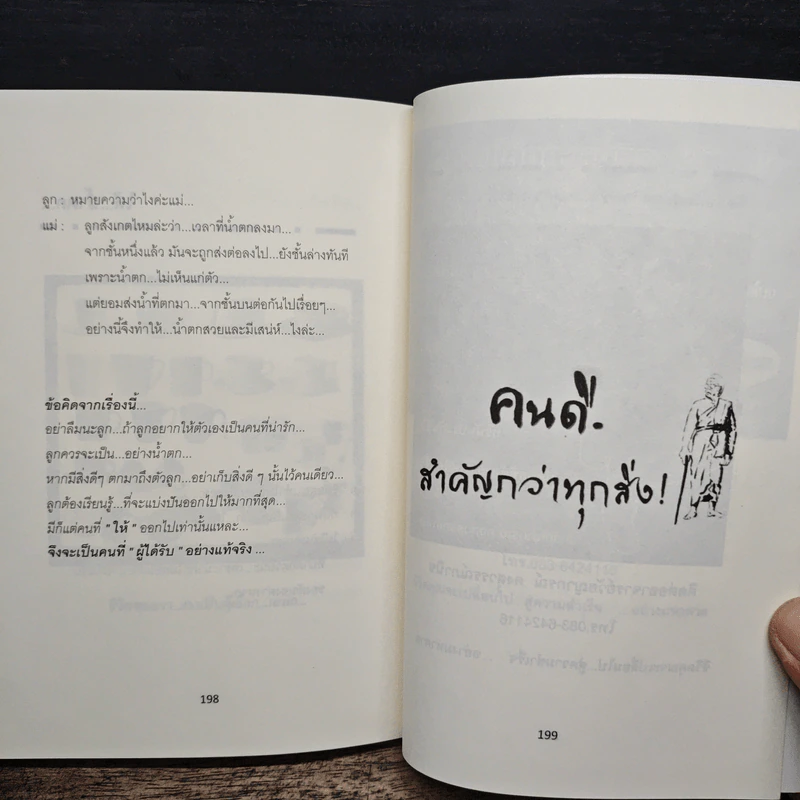 ลูก : หมายความว่าไงค่ะแม่...
แม่ : ลูกสังเกตไหมล่ะว่า...เวลาที่น้ำตกลงมา...
จากชั้นหนึ่งแล้ว มันจะถูกส่งต่อลงไป...ยังชั้นล่างทันที
เพราะน้ำตก...ไม่เห็นแก่ตัว...
แต่ยอมส่งน้ำที่ตกมา...จากชั้นบนต่อกันไปเรื่อยๆ...
อย่างนี้จึงทำให้...น้ำตกสวยและมีเสน่ห์...ไงล่ะ...
ข้อคิดจากเรื่องนี้...
อย่าลืมนะลูก...ถ้าลูกอยากให้ตัวเองเป็นคนที่น่ารัก...
ลูกควรจะเป็น...อย่างน้ำตก...
หากมีสิ่งดีๆ ตกมาถึงตัวลูก...อย่าเก็บสิ่งดี ๆ นั้นไว้คนเดียว...
ลูกต้องเรียนรู้...ที่จะแบ่งปันออกไปให้มากที่สุด...
มีก็แต่คนที่ " ให้ " ออกไปเท่านั้นแหละ...
จึงจะเป็นคนที่ " ผู้ได้รับ " อย่างแท้จริง ...
198
คนดี.
สำคัญกว่าทุกสิ่ง!
199